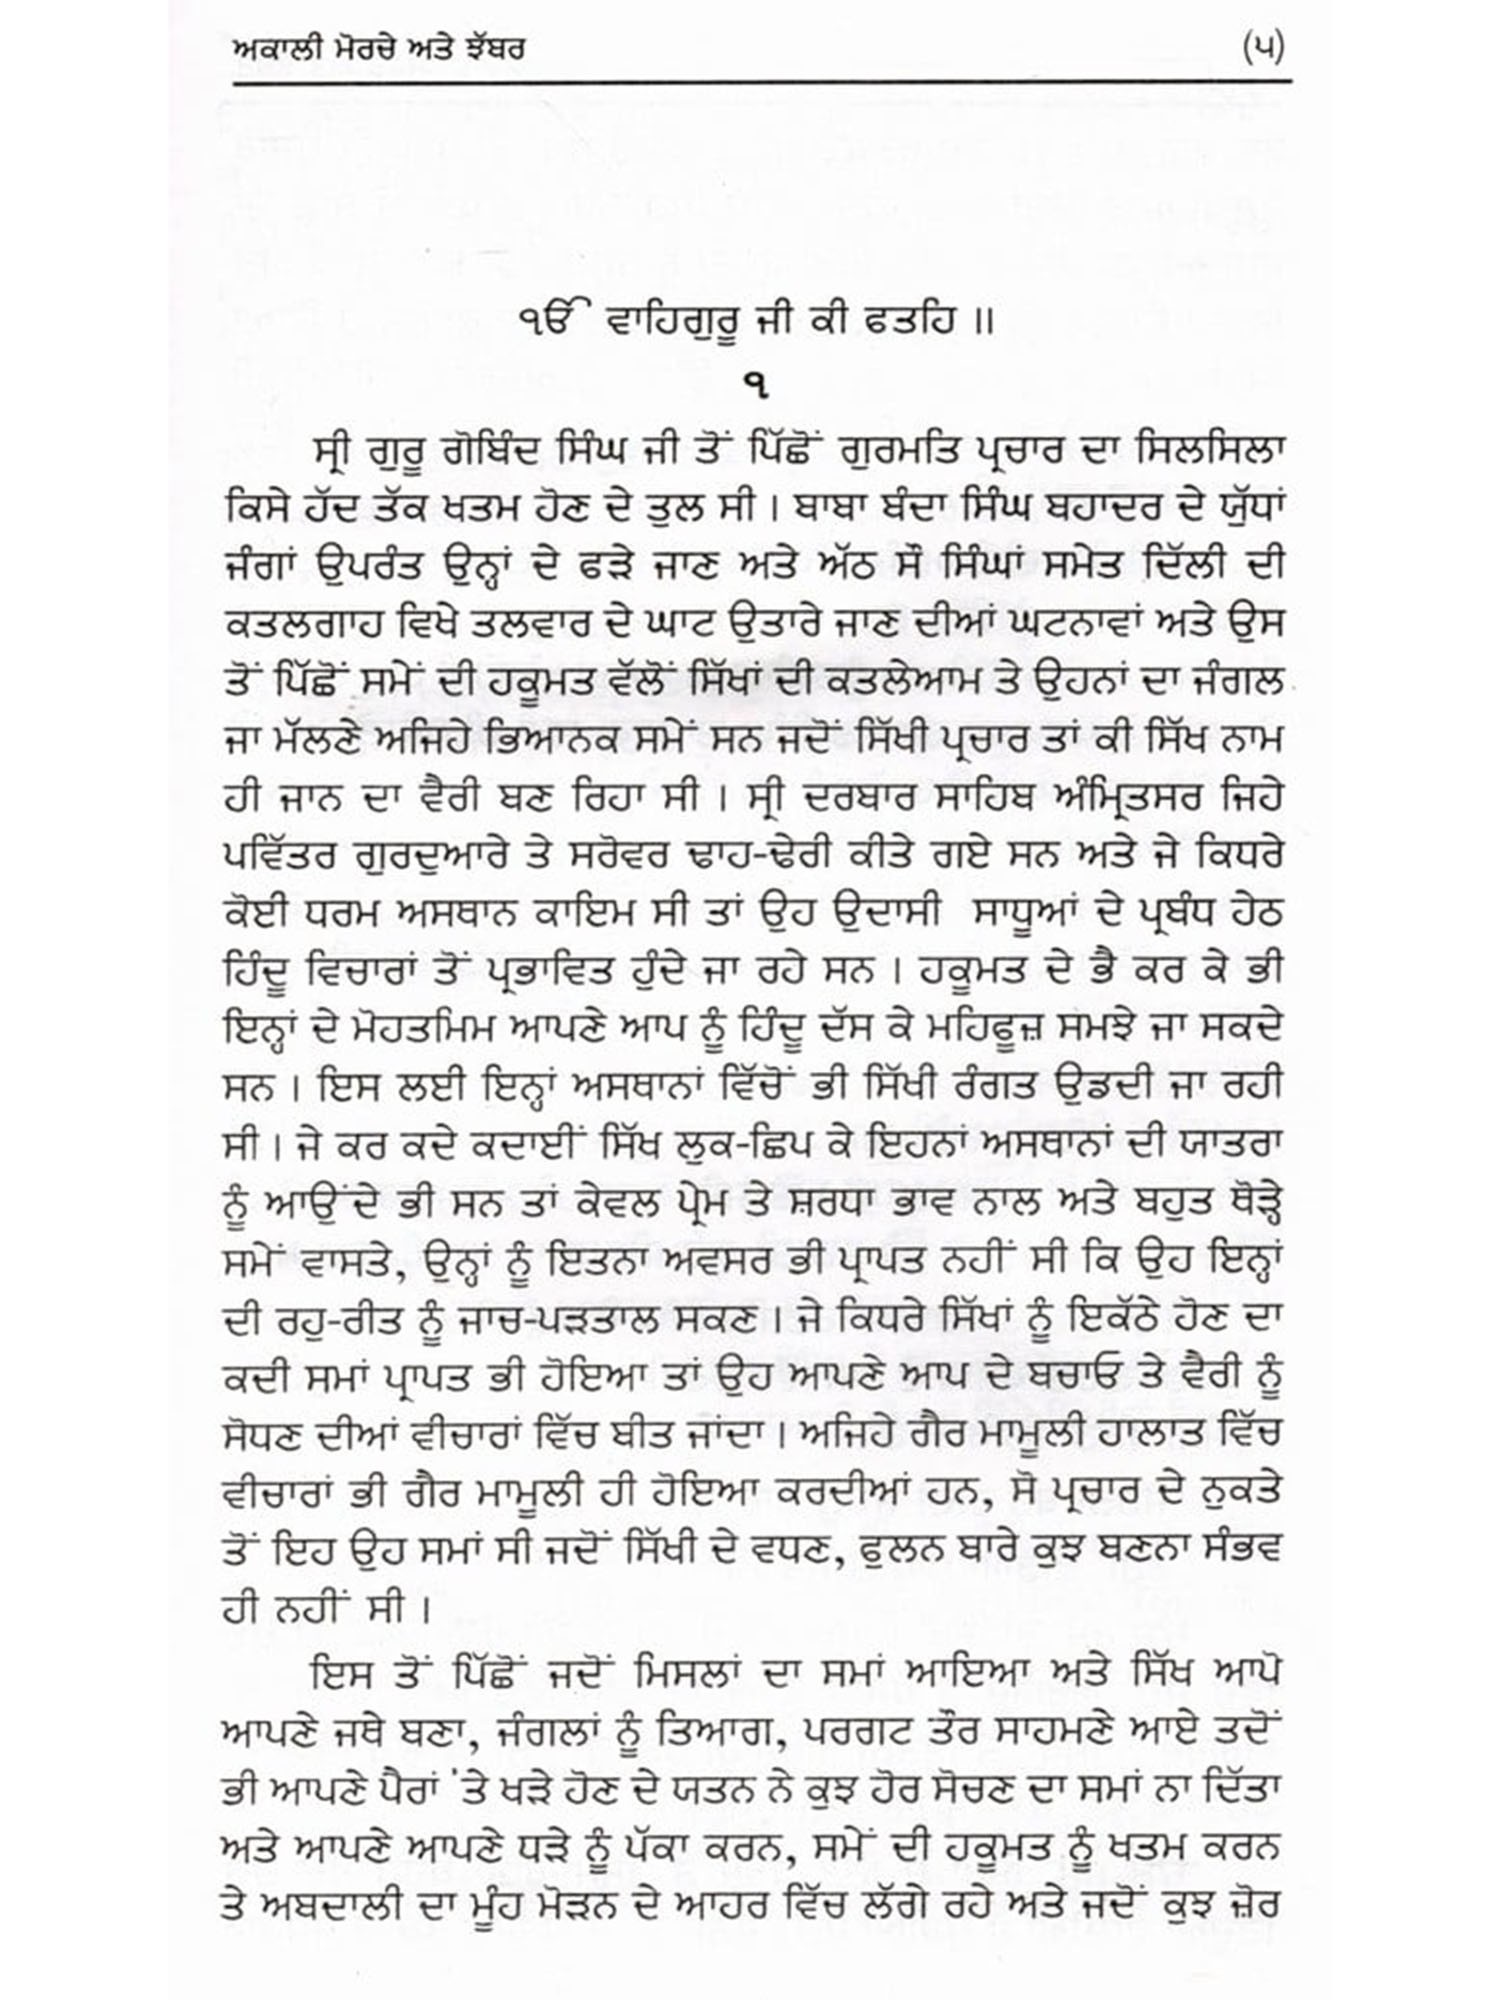 ਅਕਾਲੀ ਮੋਰਚੇ ਅਤੇ ਝੱਬਰ (੫)
ੴ ਵਾਹਿਗੁਰੂ ਜੀ ਕੀ ਫਤਹਿ ॥
੧
ਸ੍ਰੀ ਗੁਰੂ ਗੋਬਿੰਦ ਸਿੰਘ ਜੀ ਤੋਂ ਪਿੱਛੋਂ ਗੁਰਮਤਿ ਪ੍ਰਚਾਰ ਦਾ ਸਿਲਸਿਲਾ
ਕਿਸੇ ਹੱਦ ਤੱਕ ਖਤਮ ਹੋਣ ਦੇ ਤੁਲ ਸੀ। ਬਾਬਾ ਬੰਦਾ ਸਿੰਘ ਬਹਾਦਰ ਦੇ ਯੁੱਧਾਂ
ਜੰਗਾਂ ਉਪਰੰਤ ਉਨ੍ਹਾਂ ਦੇ ਫੜੇ ਜਾਣ ਅਤੇ ਅੱਠ ਸੌ ਸਿੰਘਾਂ ਸਮੇਤ ਦਿੱਲੀ ਦੀ
ਕਤਲਗਾਹ ਵਿਖੇ ਤਲਵਾਰ ਦੇ ਘਾਟ ਉਤਾਰੇ ਜਾਣ ਦੀਆਂ ਘਟਨਾਵਾਂ ਅਤੇ ਉਸ
ਤੋਂ ਪਿੱਛੋਂ ਸਮੇਂ ਦੀ ਹਕੂਮਤ ਵੱਲੋਂ ਸਿੱਖਾਂ ਦੀ ਕਤਲੇਆਮ ਤੇ ਉਹਨਾਂ ਦਾ ਜੰਗਲ
ਜਾ ਮੱਲਣੇ ਅਜਿਹੇ ਭਿਆਨਕ ਸਮੇਂ ਸਨ ਜਦੋਂ ਸਿੱਖੀ ਪ੍ਰਚਾਰ ਤਾਂ ਕੀ ਸਿੱਖ ਨਾਮ
ਹੀ ਜਾਨ ਦਾ ਵੈਰੀ ਬਣ ਰਿਹਾ ਸੀ। ਸ੍ਰੀ ਦਰਬਾਰ ਸਾਹਿਬ ਅੰਮ੍ਰਿਤਸਰ ਜਿਹੇ
ਪਵਿੱਤਰ ਗੁਰਦੁਆਰੇ ਤੇ ਸਰੋਵਰ ਢਾਹ-ਢੇਰੀ ਕੀਤੇ ਗਏ ਸਨ ਅਤੇ ਜੇ ਕਿਧਰੇ
ਕੋਈ ਧਰਮ ਅਸਥਾਨ ਕਾਇਮ ਸੀ ਤਾਂ ਉਹ ਉਦਾਸੀ ਸਾਧੂਆਂ ਦੇ ਪ੍ਰਬੰਧ ਹੇਠ
ਹਿੰਦੂ ਵਿਚਾਰਾਂ ਤੋਂ ਪ੍ਰਭਾਵਿਤ ਹੁੰਦੇ ਜਾ ਰਹੇ ਸਨ। ਹਕੂਮਤ ਦੇ ਭੈ ਕਰ ਕੇ ਭੀ
ਇਨ੍ਹਾਂ ਦੇ ਮੋਹਤਮਿਮ ਆਪਣੇ ਆਪ ਨੂੰ ਹਿੰਦੂ ਦੱਸ ਕੇ ਮਹਿਫੂਜ਼ ਸਮਝੇ ਜਾ ਸਕਦੇ
ਸਨ। ਇਸ ਲਈ ਇਨ੍ਹਾਂ ਅਸਥਾਨਾਂ ਵਿੱਚੋਂ ਭੀ ਸਿੱਖੀ ਰੰਗਤ ਉਡਦੀ ਜਾ ਰਹੀ
ਸੀ। ਜੇ ਕਰ ਕਦੇ ਕਦਾਈਂ ਸਿੱਖ ਲੁਕ-ਛਿਪ ਕੇ ਇਹਨਾਂ ਅਸਥਾਨਾਂ ਦੀ ਯਾਤਰਾ
ਨੂੰ ਆਉਂਦੇ ਭੀ ਸਨ ਤਾਂ ਕੇਵਲ ਪ੍ਰੇਮ ਤੇ ਸ਼ਰਧਾ ਭਾਵ ਨਾਲ ਅਤੇ ਬਹੁਤ ਥੋੜ੍ਹੇ
ਸਮੇਂ ਵਾਸਤੇ, ਉਨ੍ਹਾਂ ਨੂੰ ਇਤਨਾ ਅਵਸਰ ਭੀ ਪ੍ਰਾਪਤ ਨਹੀਂ ਸੀ ਕਿ ਉਹ ਇਨ੍ਹਾਂ
ਦੀ ਰਹੁ-ਰੀਤ ਨੂੰ ਜਾਚ-ਪੜਤਾਲ ਸਕਣ। ਜੇ ਕਿਧਰੇ ਸਿੱਖਾਂ ਨੂੰ ਇਕੱਠੇ ਹੋਣ ਦਾ
ਕਦੀ ਸਮਾਂ ਪ੍ਰਾਪਤ ਭੀ ਹੋਇਆ ਤਾਂ ਉਹ ਆਪਣੇ ਆਪ ਦੇ ਬਚਾਓ ਤੇ ਵੈਰੀ ਨੂੰ
ਸੋਧਣ ਦੀਆਂ ਵੀਚਾਰਾਂ ਵਿੱਚ ਬੀਤ ਜਾਂਦਾ। ਅਜਿਹੇ ਗੈਰ ਮਾਮੂਲੀ ਹਾਲਾਤ ਵਿੱਚ
ਵੀਚਾਰਾਂ ਭੀ ਗੈਰ ਮਾਮੂਲੀ ਹੀ ਹੋਇਆ ਕਰਦੀਆਂ ਹਨ, ਸੋ ਪ੍ਰਚਾਰ ਦੇ ਨੁਕਤੇ
ਤੋਂ ਇਹ ਉਹ ਸਮਾਂ ਸੀ ਜਦੋਂ ਸਿੱਖੀ ਦੇ ਵਧਣ, ਫੁਲਨ ਬਾਰੇ ਕੁਝ ਬਣਨਾ ਸੰਭਵ
ਹੀ ਨਹੀਂ ਸੀ।
ਇਸ ਤੋਂ ਪਿੱਛੋਂ ਜਦੋਂ ਮਿਸਲਾਂ ਦਾ ਸਮਾਂ ਆਇਆ ਅਤੇ ਸਿੱਖ ਆਪੋ
ਆਪਣੇ ਜਥੇ ਬਣਾ, ਜੰਗਲਾਂ ਨੂੰ ਤਿਆਗ, ਪਰਗਟ ਤੌਰ ਸਾਹਮਣੇ ਆਏ ਤਦੋਂ
ਭੀ ਆਪਣੇ ਪੈਰਾਂ 'ਤੇ ਖੜੇ ਹੋਣ ਦੇ ਯਤਨ ਨੇ ਕੁਝ ਹੋਰ ਸੋਚਣ ਦਾ ਸਮਾਂ ਨਾ ਦਿੱਤਾ
ਅਤੇ ਆਪਣੇ ਆਪਣੇ ਧੜੇ ਨੂੰ ਪੱਕਾ ਕਰਨ, ਸਮੇਂ ਦੀ ਹਕੂਮਤ ਨੂੰ ਖਤਮ ਕਰਨ
ਤੇ ਅਬਦਾਲੀ ਦਾ ਮੂੰਹ ਮੋੜਨ ਦੇ ਆਹਰ ਵਿੱਚ ਲੱਗੇ ਰਹੇ ਅਤੇ ਜਦੋਂ ਕੁਝ ਜ਼ੋਰ